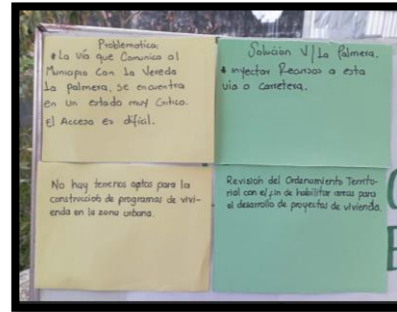 Problematica:
* La vía que Comunica al
Municipio Con La Vereda
La palmera, se encuentra
en un estado muy Critico.
El Acceso es difícil.
Solución V/ La Palmera.
* inyectar Recursos a esta
via o carretera.
No hay terrenos aptos para la
construcción de programas de vivi-
enda en la zona urbana.
Revisión del Ordenamiento Territo-
rial con el fin de habilitar areas para
el desarrollo de proyectos de vivienda.